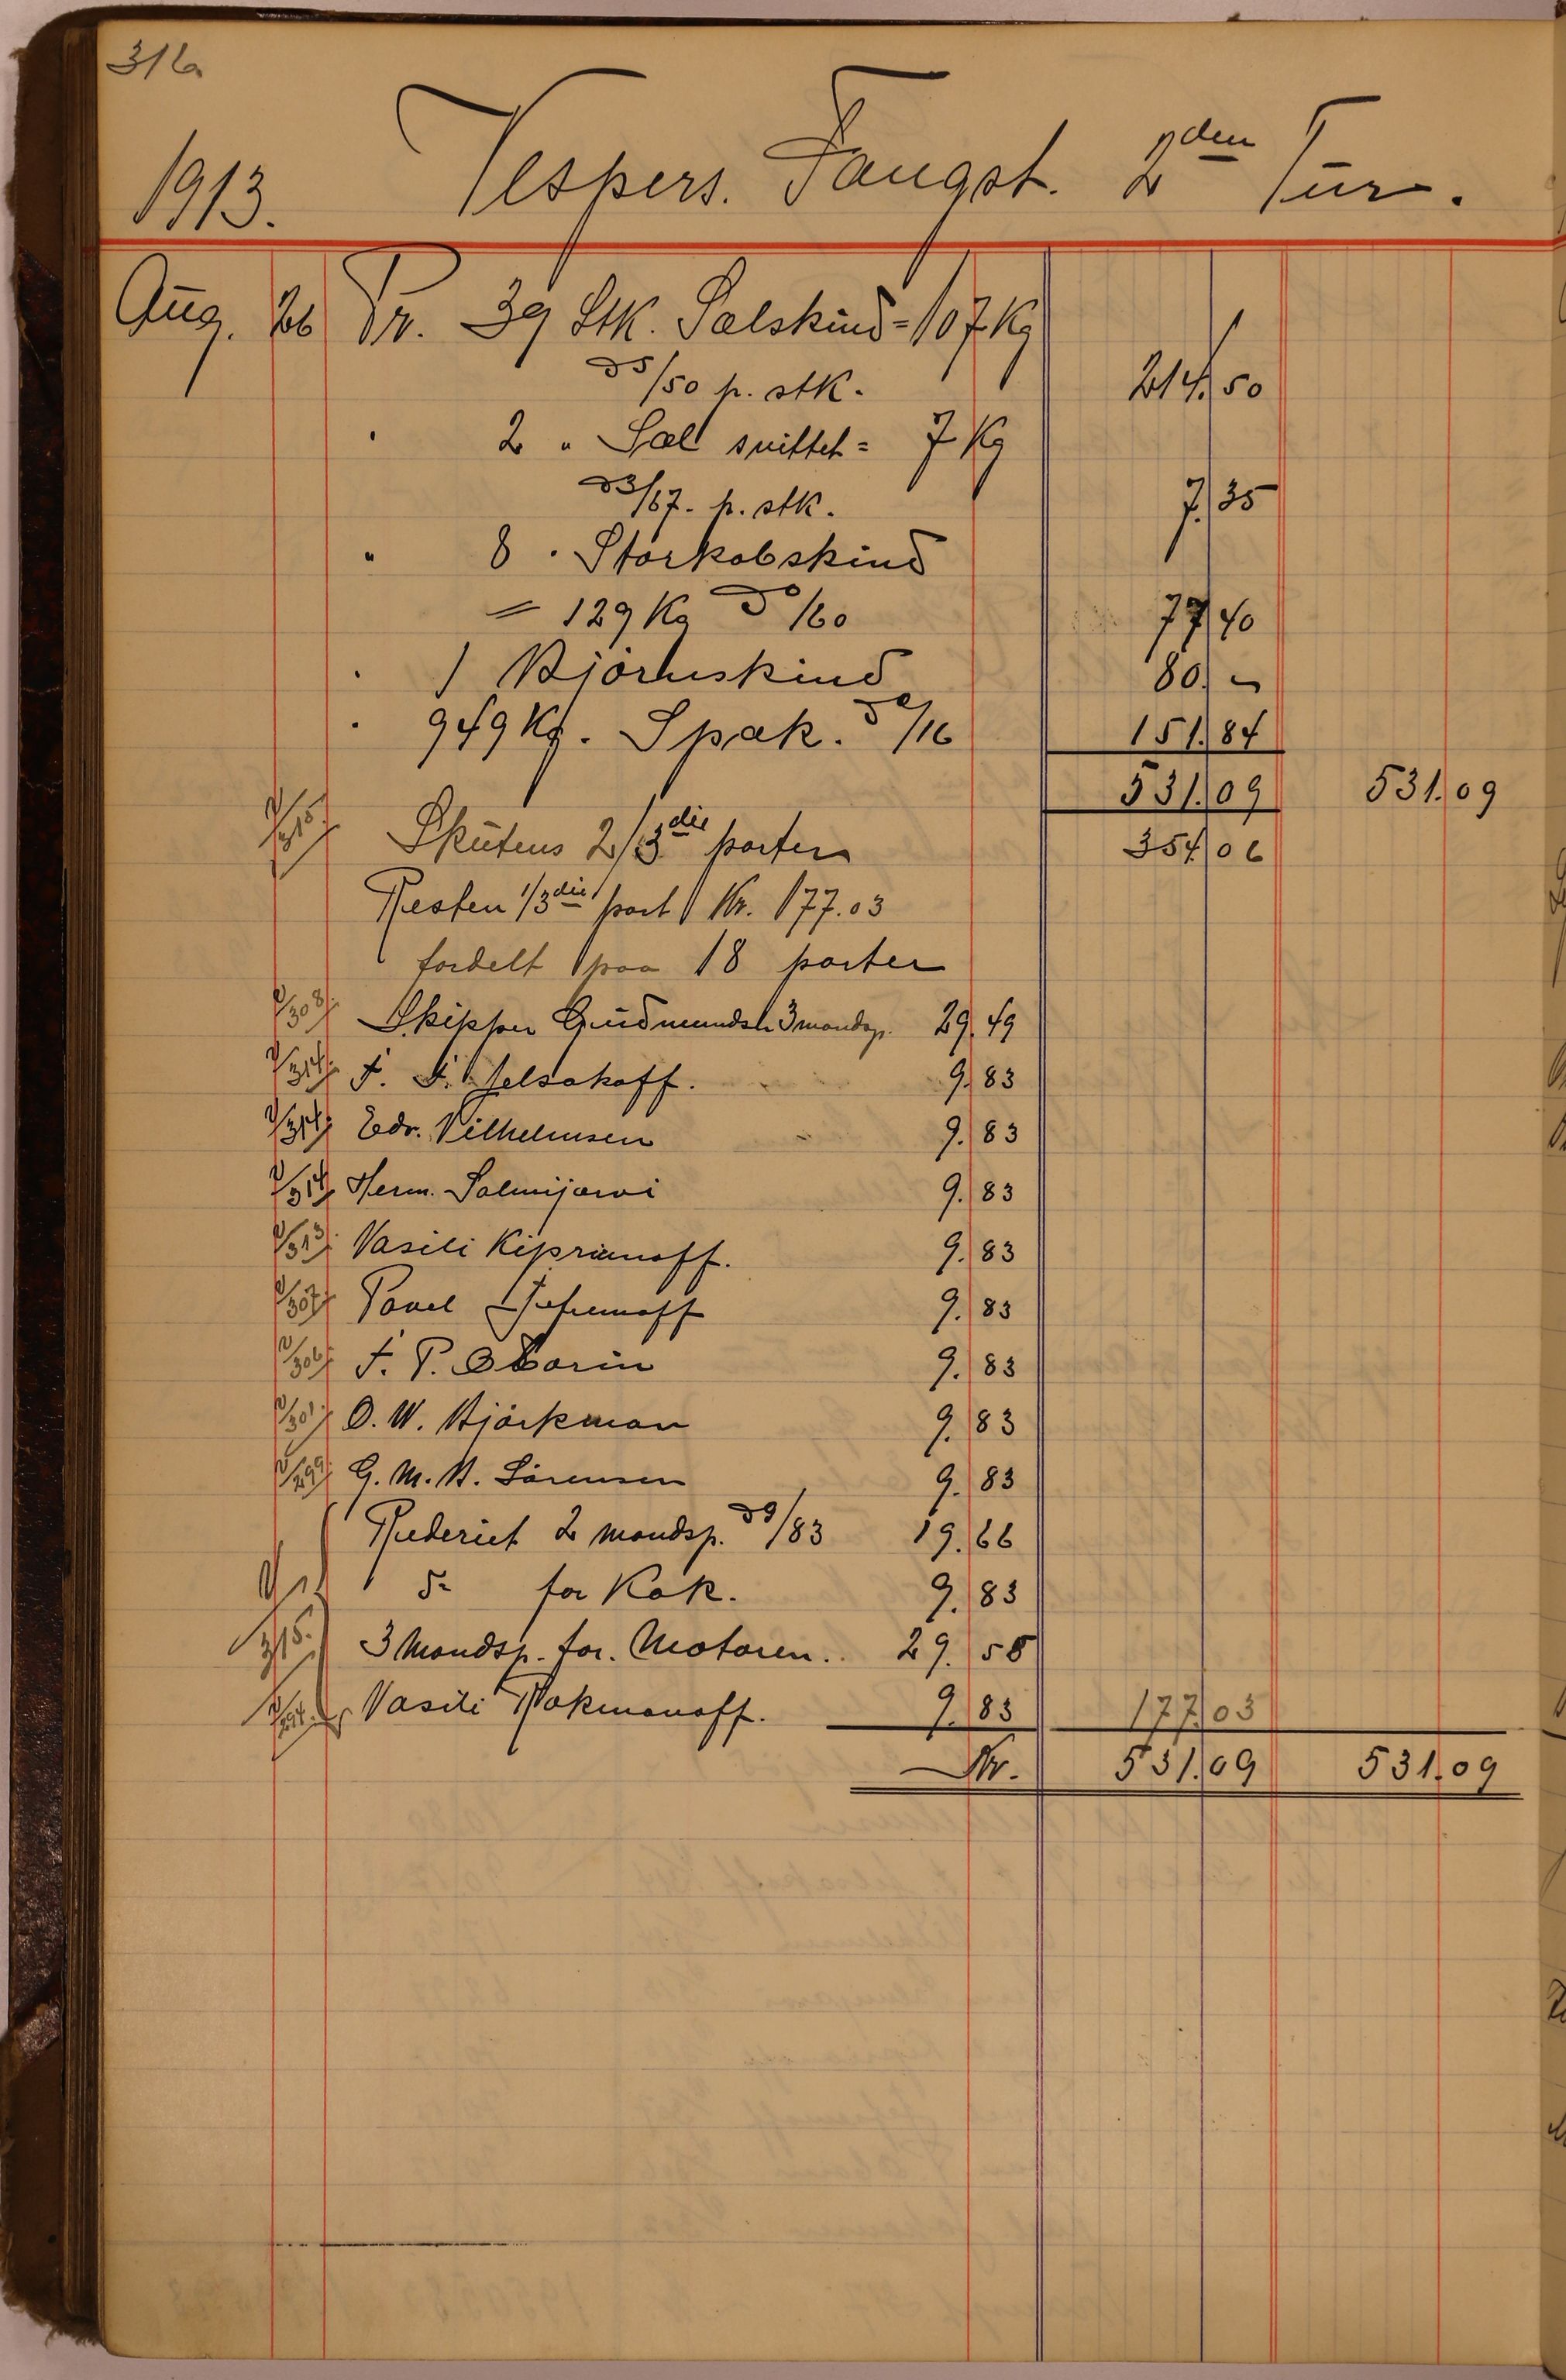 316
1913. Vespers. Fangst. 2den Tur.
Aug. 26 Pr. 39 Stk. Sælskind = 107 Kg
à 5/50 p. stk. 214.50
" 2 " Sæl snittet = 7 Kg
à 3/67. p. stk. 7.35
" 8 " Storkobskind
= 129 Kg à 0/60 77.40
" 1 Bjørneskind 80. -
" 949 Kg. Spæk. à 0/16 151.84
531.09 531.09
V/315. Skutens 2/3die parter 354.06
Resten 1/3die part Kr. 177.03
fordelt paa 18 parter
V/308 Skipper Gudmundsen 3 mandsp. 29.49
V/314 F. F. 9.83
V/314 Edv. Vilhelmsen 9.83
V/314 Herm. Salmijarvi 9.83
V/313 Vasili Kiprianoff. 9.83
V/307 Pavel 9.83
V/306 F. P. 9.83
V/301 O. W. Björkman 9.83
V/299 G. M. B. Sörensen 9.83
Rederiet 2 mandsp. à 9/83 19.66
do for Kok. 9.83
V/315. 3 Mandsp. for. Motoren. 29.58
V/294. Vasili Rokmanoff. 9.83 177.03
Kr. 531.09 531.09